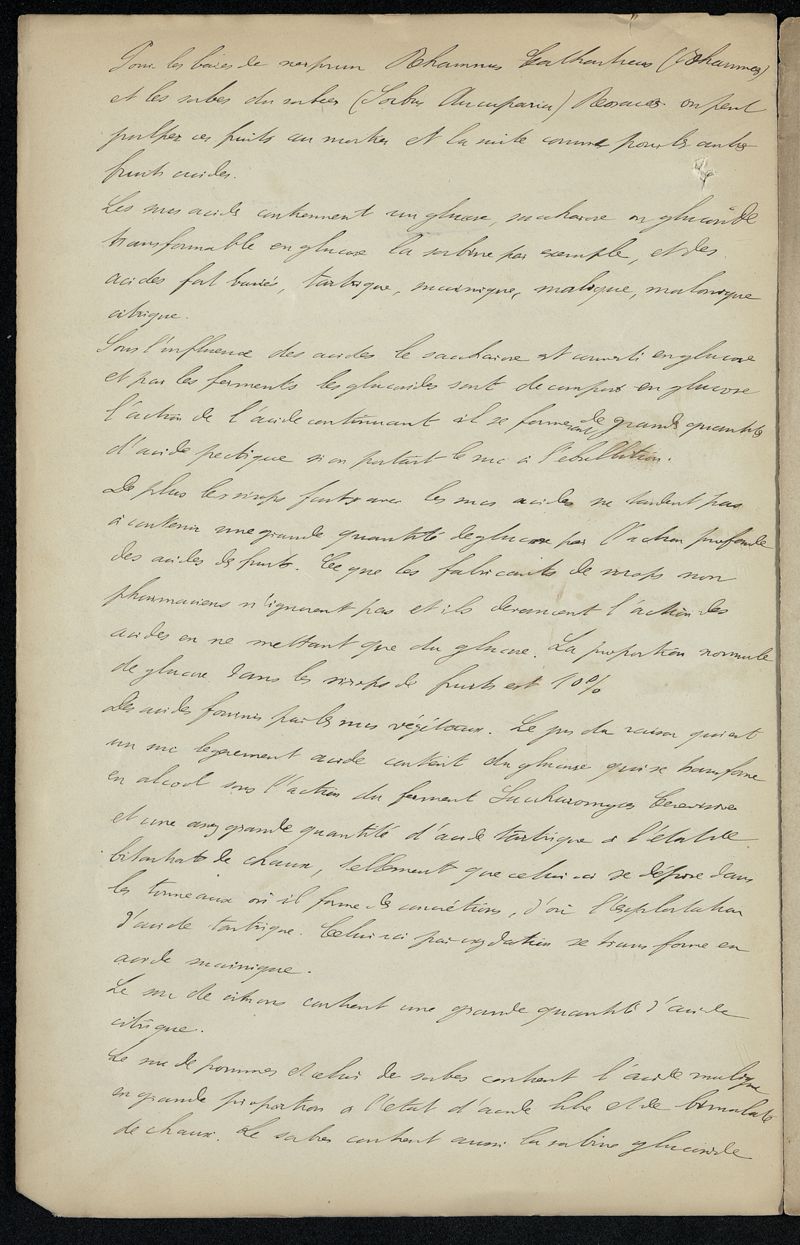 Pour les baies de nerprun Rhamnus Catharticus (Rhamnées)
et les sorbes du sorbier (Sorbus Aucuparia) Rosacées on peut
pulper ces fruits au mortier et la suite comme pour les autres
fruits acides.
Les sucs acides contiennent un glucose, saccharose ou glucoside
transformable en glucose la sorbine par exemple, et des
acides fort variés, tartrique, succinique, malique, malonique
citrique.
Sous l'influence des acides le saccharose est converti en glucose
et par les ferments les glucosides sont decomposés en glucose
l'action de l'acide continuant il se forme de grande quantité
d'acide pectique si on portait le suc à l'ébullition.
De plus les sirops faits avec les sucs acides ne tardent pas
à contenir une grande quantité de glucose par l'action profonde
des acides de fruits. Ce que les fabricants de sirops non
pharmaciens n'ignorent pas et ils devancent l'action des
acides en ne mettant que du glucose. La proportion normale
de glucose dans les sirops de fruits est 10%
Des acides fournis par les sucs végétaux. Le jus du raisin qui est
un suc legerement acide contient du glucose qui se transforme
en alcool sous l'action du ferment Saccharomyces Cerevisiae
et une assez grande quantité d'acide tartrique à l'état de
bitartrate de chaux, tellement que celui ci se dépose dans
les tonneaux où il forme des concrétions, d'où l'exploitation
d'acide tartrique. Celui ci par oxydation se transforme en
acide succinique.
Le suc de citrons contient une grande quantité d'acide
citrique.
Le suc de pommes et celui de sorbes contient l'acide malique
en grande proportion à l'état d'acide libre et de bimalate
de chaux. Le sorbes contient aussi la sorbine glucoside